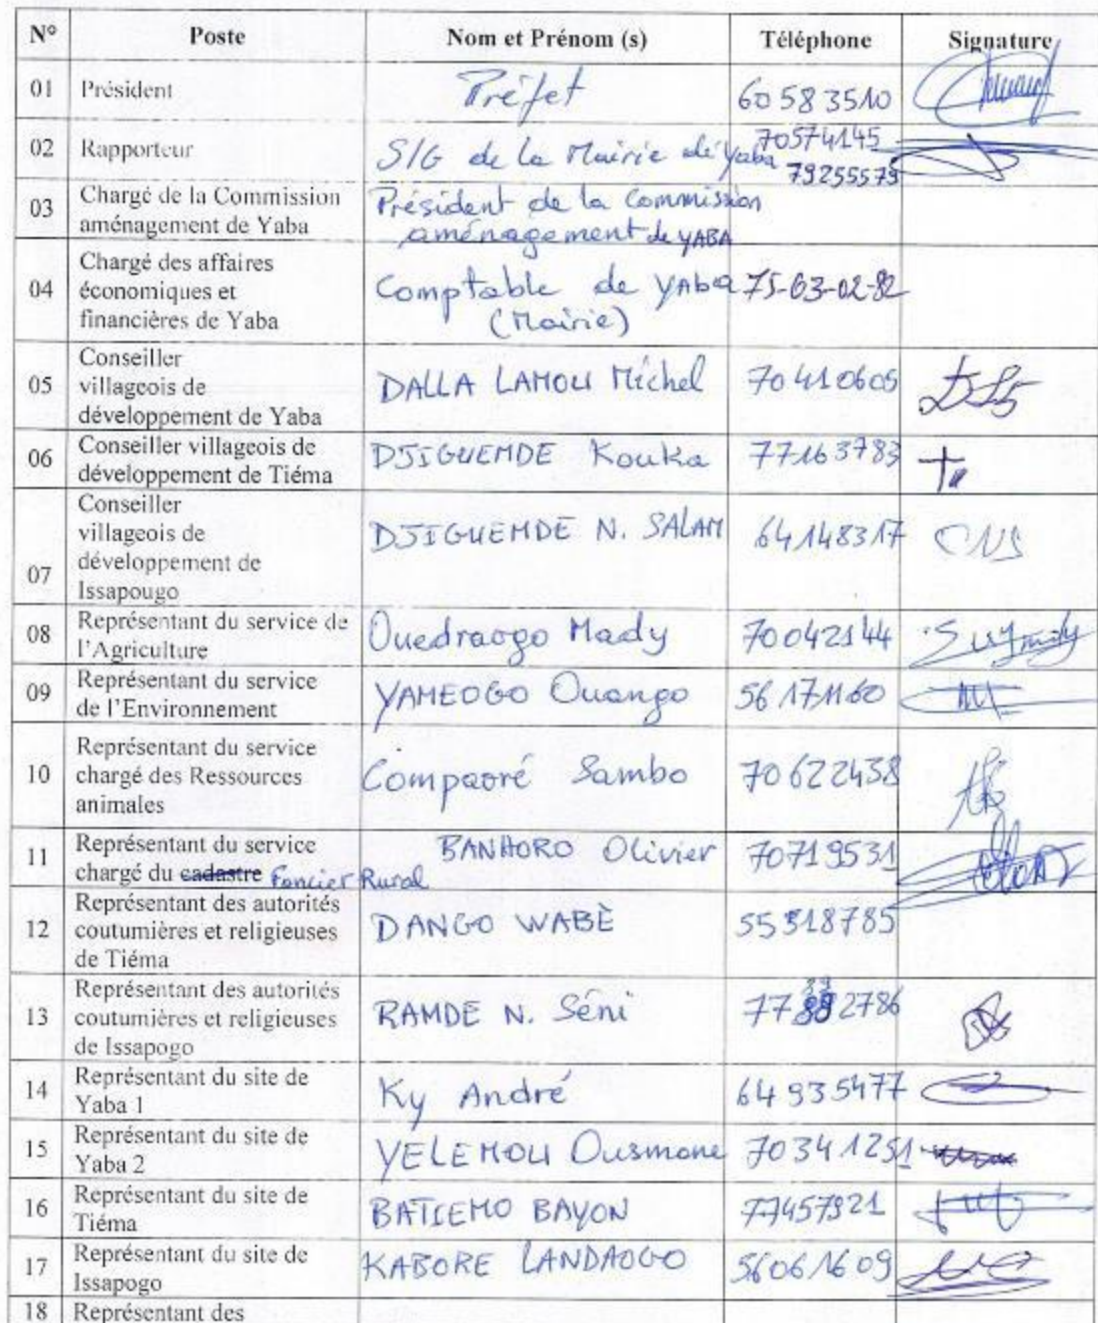 N° Poste Nom et Prénom (s) Téléphone Signature
01 Président Préfet 60 58 35 10
02 Rapporteur S/G de la Mairie de Yaba 70574145
79255579
03 Chargé de la Commission
aménagement de Yaba
Président de la Commission
aménagement de YABA
04 Chargé des affaires
économiques et
financières de Yaba
Comptable de YABA 75-63-02-82
(Mairie)
05 Conseiller
villageois de
développement de Yaba
DALLA LAMOU Michel 70 41 0605
06 Conseiller villageois de
développement de Tiéma
DJIGUEMDE Kouka 77163783
07 Conseiller
villageois de
développement de
Issapougo
DJIGUEMDE N. SALAM 64148317
08 Représentant du service de
l'Agriculture
Ouedraogo Mady 70042144
09 Représentant du service
de l'Environnement
YAMEOGO Ouango 56 17 11 60
10 Représentant du service
chargé des Ressources
animales
Compaoré Sambo 70622438
11 Représentant du service
chargé du cadastre Foncier Rural
BANHORO Olivier 70719531
12 Représentant des autorités
coutumières et religieuses
de Tiéma
DANGO WABÈ 55318785
13 Représentant des autorités
coutumières et religieuses
de Issapogo
RAMDE N. Séni
14 Représentant du site de
Yaba 1
Ky André 64 93 54 77
15 Représentant du site de
Yaba 2
YELEMOU Ousmane 70 34 12 51
16 Représentant du site de
Tiéma
BATIEMO BAYON 77457921
17 Représentant du site de
Issapogo
KABORE LANDAOGO 56061609
18 Représentant des